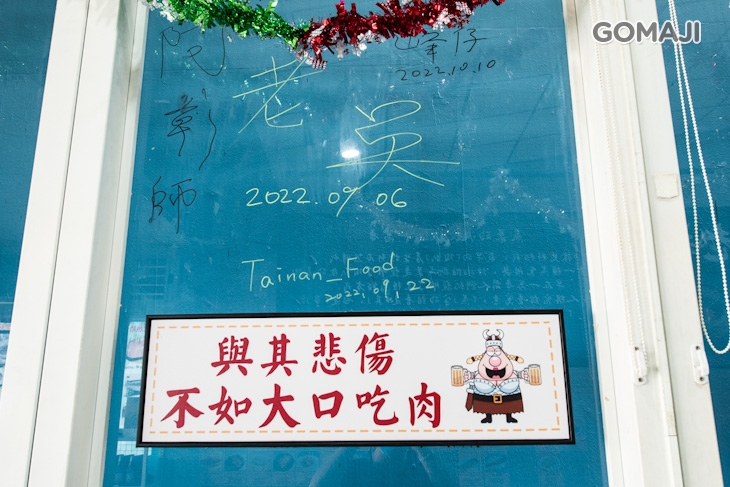 GOMAJI
阿彰師
峰仔
2022.10.10
老吳
2022.09.06
Tainan_Food
2022.09.22
與其悲傷
不如大口吃肉